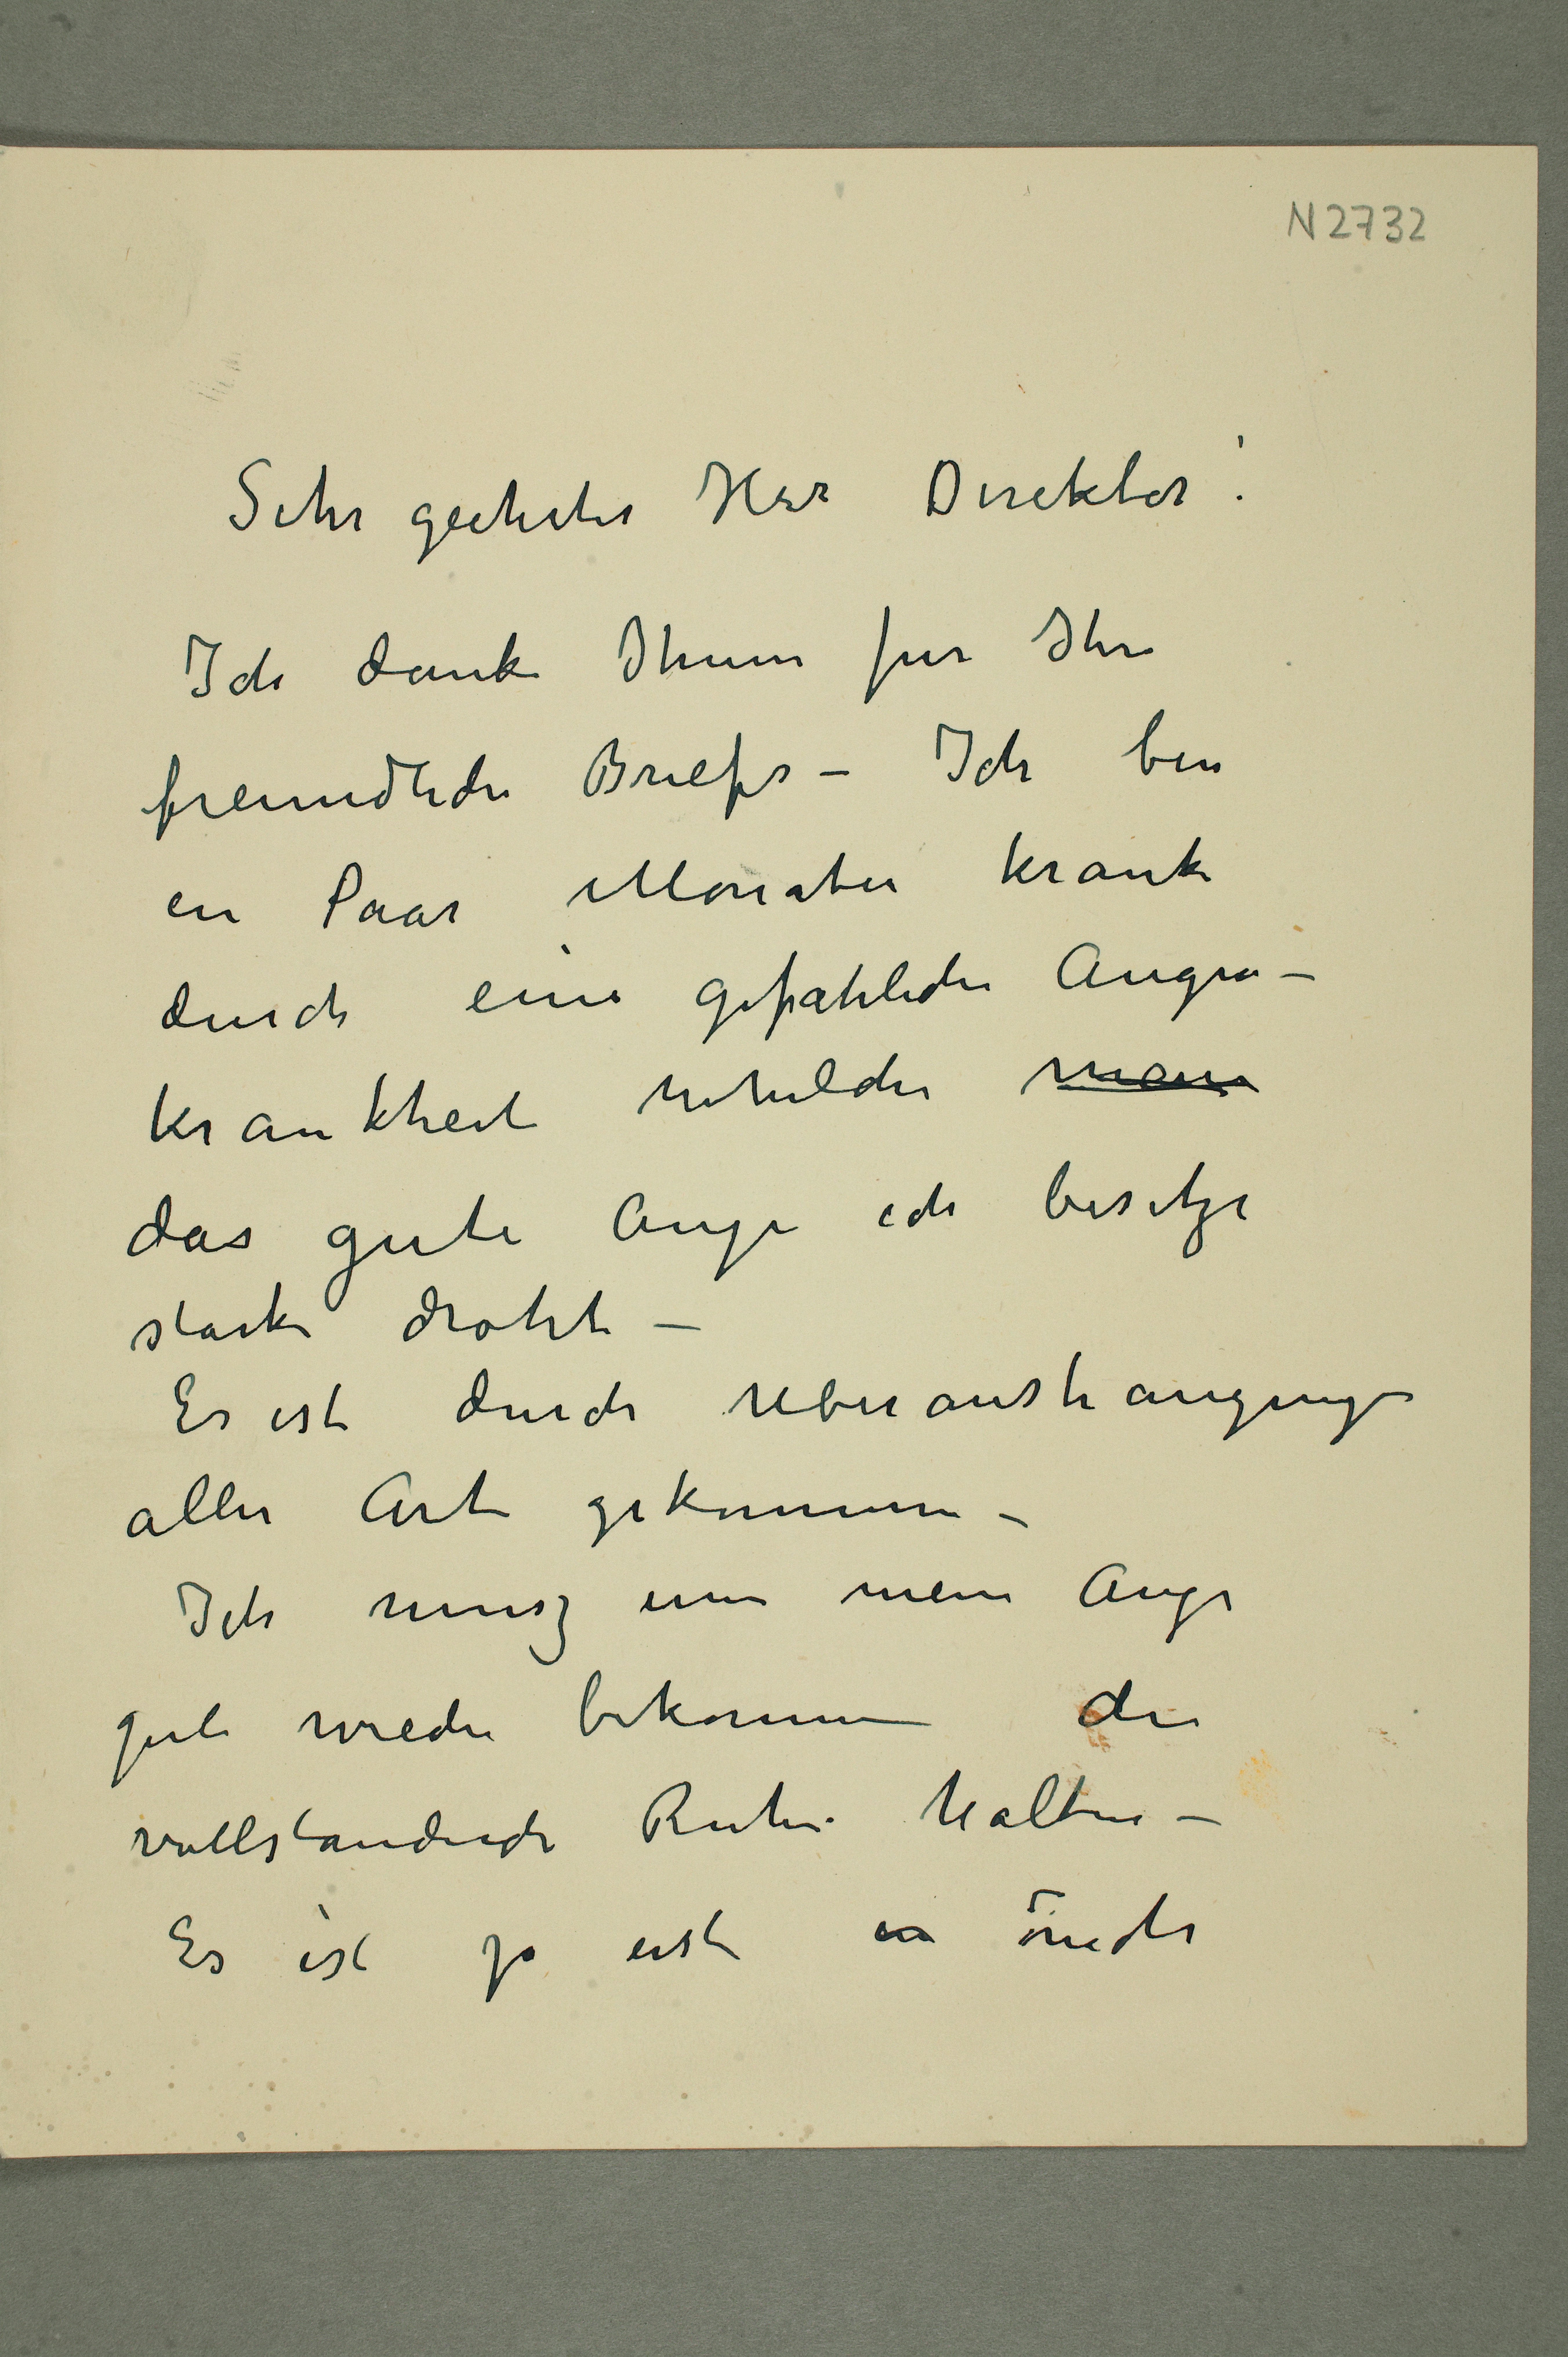 N 2732
Sehr geehrter Herr Direktor!
Ich danke Ihnen für Ihre
freundliche Briefe – Ich bin
ein Paar Monaten krank
durch eine gefährliche Augen-
krankheit welche
das gute Auge ich besitze
stark droht –
Es ist durch Überanstrangung
aller Art gekommen –
Ich musz um mein Auge
gut wieder bekommen die
vollständige Ruhe halten –
Es ist ja erst